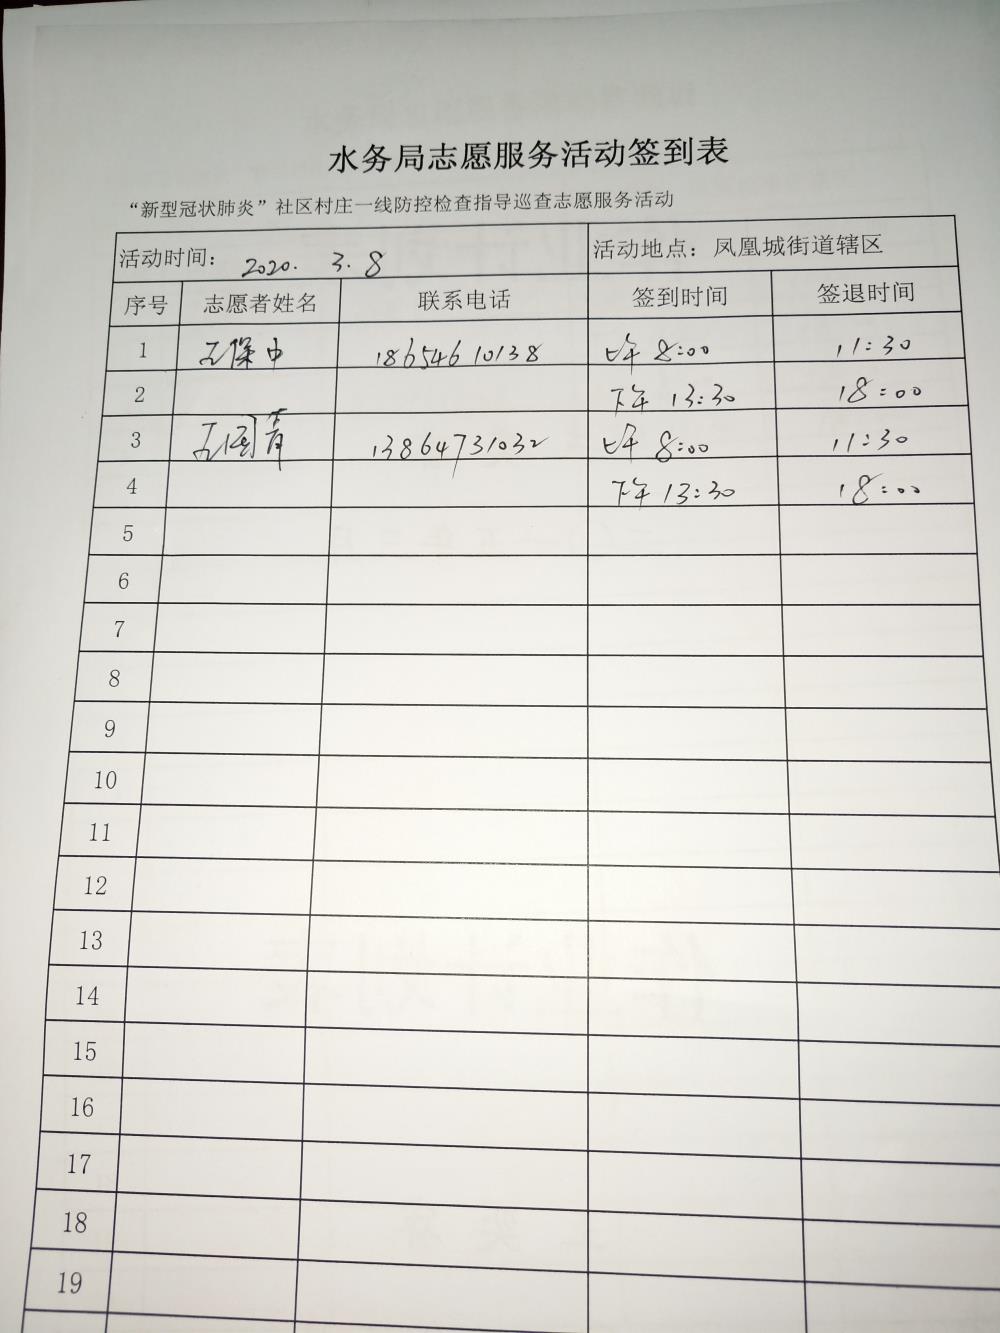 水务局志愿服务活动签到表
“新型冠状肺炎”社区村庄一线防控检查指导巡查志愿服务活动
活动时间： 2020. 3. 8 活动地点：凤凰城街道辖区
序号 志愿者姓名 联系电话 签到时间 签退时间
1 保中 18654610138 上午 8:00 11:30
2 下午 13:30 18:00
3 13864731032 上午 8:00 11:30
4 下午 13:30 18:00
5
6
7
8
9
10
11
12
13
14
15
16
17
18
19